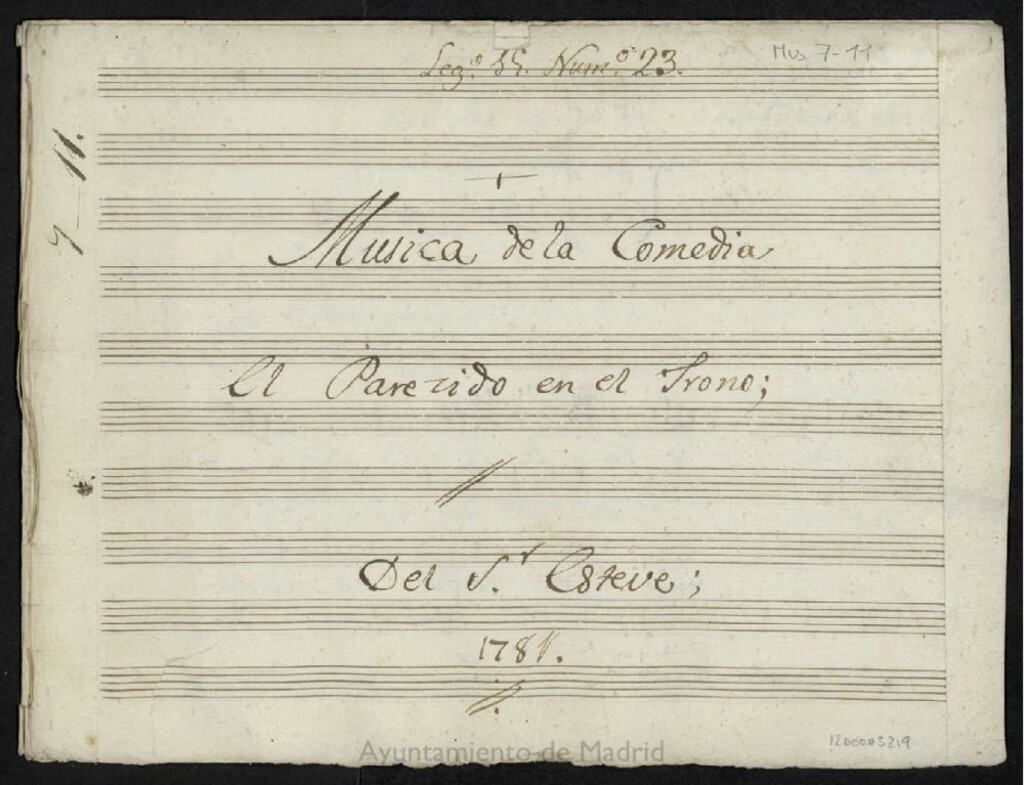 Leg.º 15. Num.º 23.
Mus 7-11
7-11.
Musica de la Comedia
El Parezido en el Trono;
Del S.r Esteve;
1781.
Ayuntamiento de Madrid
1200005219